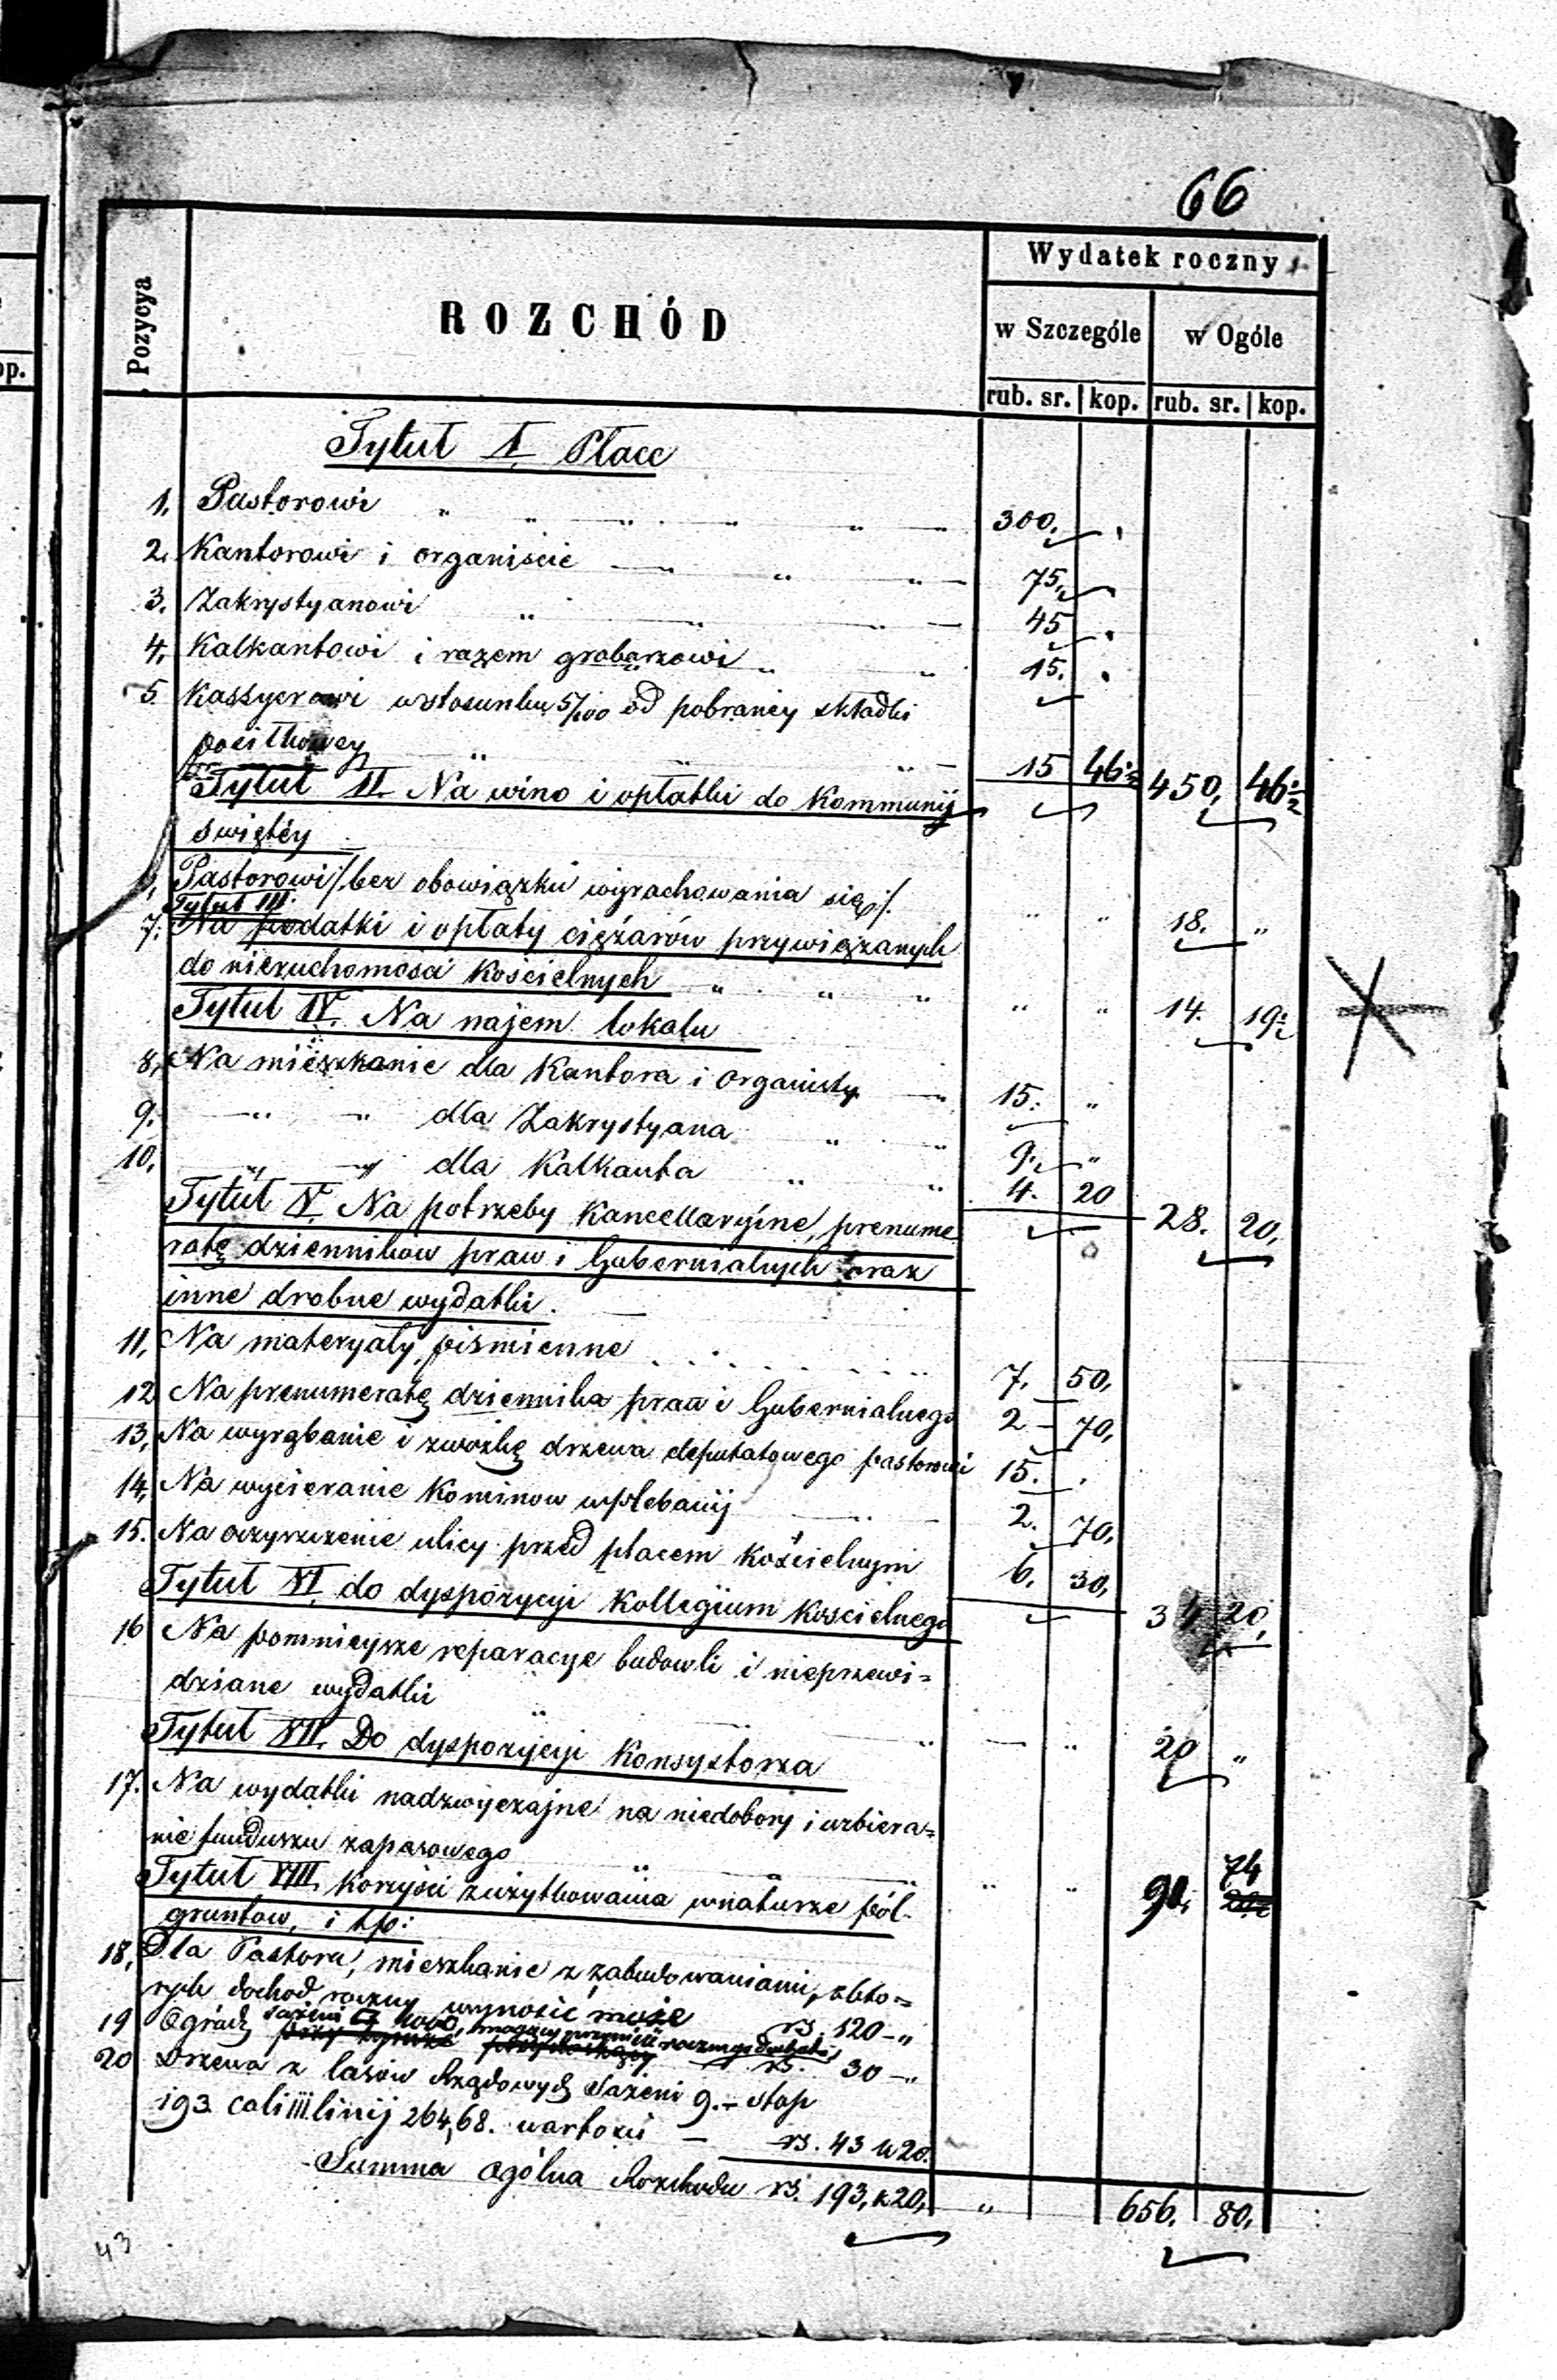 66
Pozycya
ROZCHÓD
Wydatek roczny
w Szczególe
w Ogóle
rub. sr. kop. rub. sr. kop.
op.
Tytuł I. Płace
1. Pastorowi " " " " " " 300.
2. Kantorowi i organiście " " " 75.
3. Zakrystyanowi " " " 45
4. Kalkantowi i razem grobarzowi " " 15.
5 Kassyerowi w stosunku 5/100 od pobranéy składki
posiłkowey " " " 15 46 1/2 450. 46 1/2
Tytuł II. Na wino i opłatki do Kommunij
swiętéy
Pastorowi /bez obowiązku wyrachowania się/. " " 18. "
Tytuł III.
7. Na podatki i opłaty ciężarów przywiązanych
do nieruchomości Kościelnych " " " " " 14. 19 1/2
Tytuł IV. Na najem lokalu
8. Na mieszkanie dla Kantora i organisty " 15. "
9. " " dla Zakrystyana " " 9. "
10. " " dla Kalkanta " " 4. 20 28. 20.
Tytuł V. Na potrzeby Kancellaryine, prenume
ratę dzienników praw i Gubernialnych oraz
inne drobne wydatki.
11. Na materyały piśmienne 7. 50.
12 Na prenumeratę dziennika praw i Gubernialnego 2 - 70.
13. Na wyrąbanie i zwózkę drzewa deputatowego pastorowi 15.
14. Na wycieranie Kominow w plebanij 2. 70.
15. Na oczyszczenie ulicy przed placem Kościelnym 6. 30. 34 20.
Tytuł VI. do dyspozycyi Kollegium Kościelnego
16 Na pomnieysze reparacye budowli i nieprzewi=
dziane wydatki " " " — " 20 "
Tytuł VII. Do dyspozycyi Konsystorza
17. Na wydatki nadzwyczajne na niedobory i uzbiera=
nie funduszu zapasowego " " " " " 91. 74
Tytuł VIII. Korzyści z użytkowania w naturze pól
gruntow, i t.p:
18. Dla Pastora, mieszkanie z zabudowaniami, z któ=
rych dochod roczny wynosić może rs. 120 - "
19 Ogród sążni 1000, rs. 30 - "
20 Drzewa z lasów Rządowych Sążeni 9. - stop
193 cali III linij 264,68. wartości — rs. 43 k 20.
Summa ogólna Rozchodu rs. 193, k 20, " 656. 80.
43